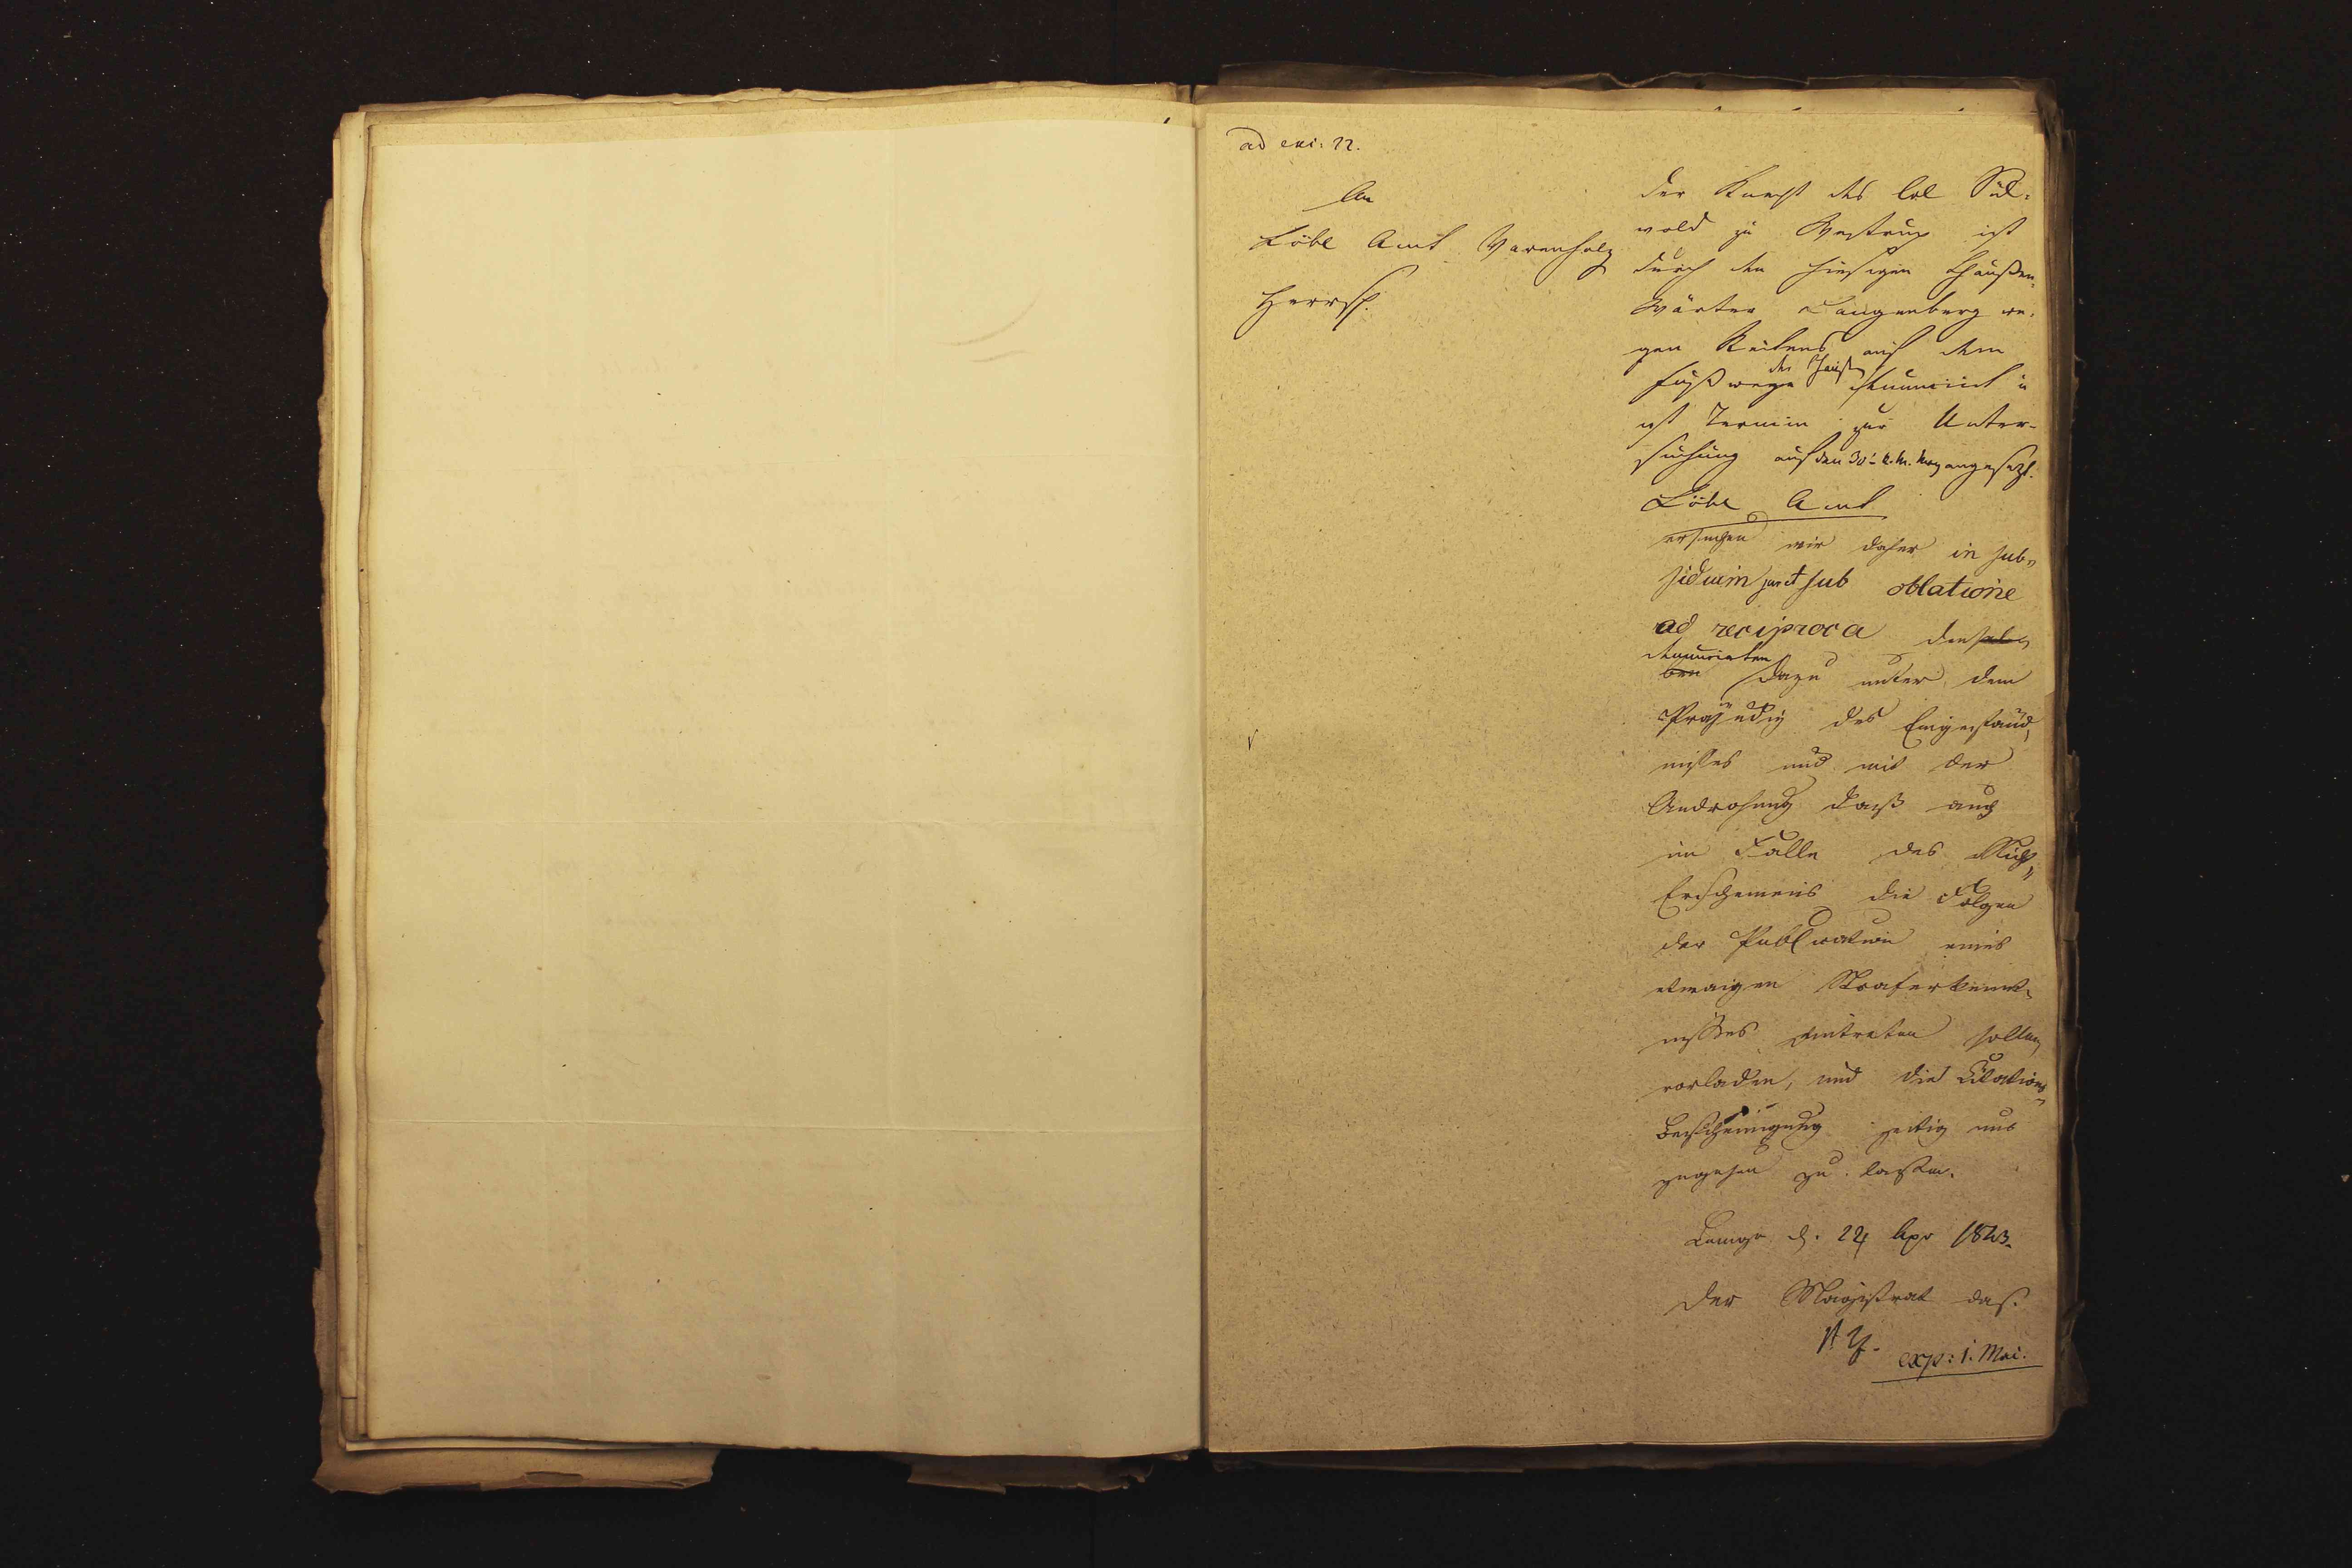 ad exi: 22.
An
Löbl Amt Varenholz
Herrsch.
Der Knecht des Col Süd-
wold zu Westrup ist
durch den hiesigen Chaußee-
Wärter Langenberg we-
gen Reitens auf dem
Fußwege der Chauß denunciirt u
ist Termin zur Unter-
suchung auf den 30t k. M. Mrg angesetzt.
Löbl Amt
ersuchen wir daher in sub-
sidium juris et sub oblatione
ad reciproca denselben
Denunciaten dazu unter dem
Präjudiz des Eingeständ-
nisses und mit der
Androhung daß auch
im Falle des Nicht-
Erscheinens die Folgen
der Publication eines
etwaigen Straferkennt-
nisses eintreten sollen
vorladen, und die Citations-
Bescheinigung zeitig uns
zugehen zu lassen.
Lemgo d. 24 Apr 1843.
Der Magistrat das.
exp: 1. Mai.